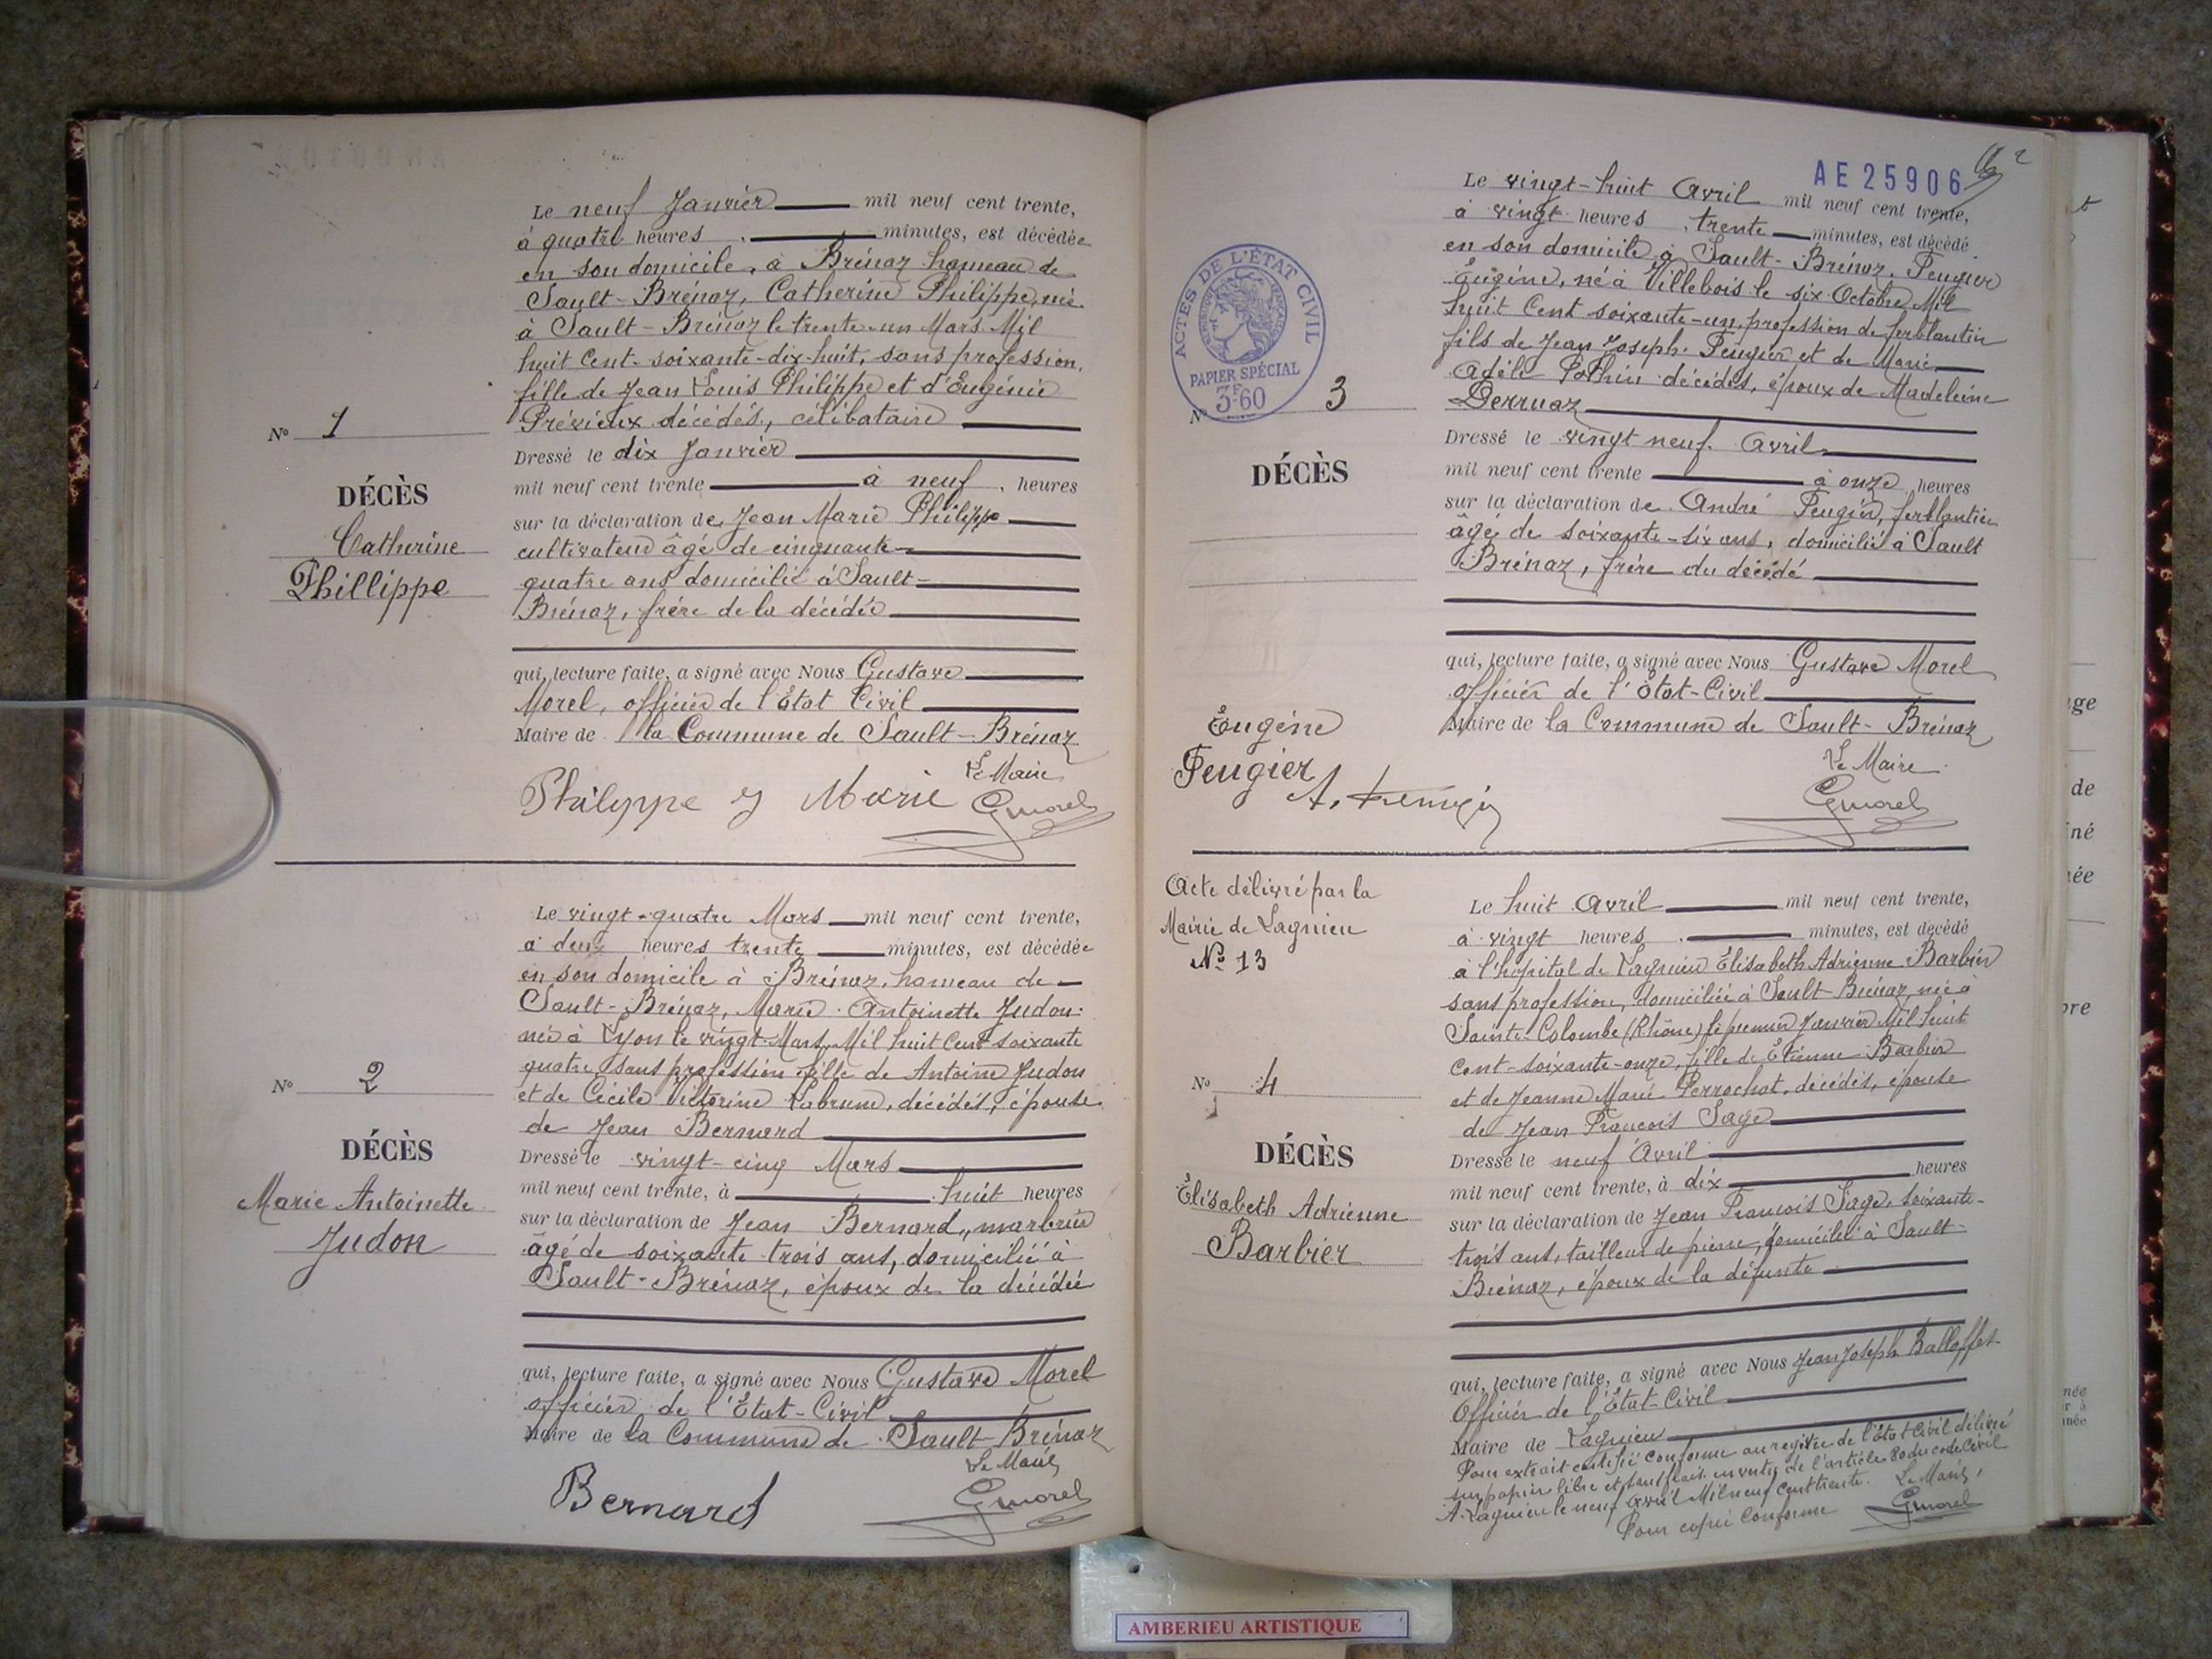 Le neuf Janvier mil neuf cent trente,
à quatre heures minutes, est décédée
en son domicile, à Brénaz hameau de
Sault-Brénaz, Catherine Philippe, née
à Sault-Brénaz le trente-un Mars Mil
huit Cent-soixante-dix-huit, sans profession,
fille de Jean Louis Philippe et d'Eugénie
Prévieux décédés, célibataire
No 1
Dressé le dix Janvier
mil neuf cent trente à neuf heures
DÉCÈS
Catherine
Phillippe
sur la déclaration de Jean Marie Philippe
cultivateur âgé de cinquante-
quatre ans domicilié à Sault-
Brénaz, frère de la décédée
qui, lecture faite, a signé avec Nous Gustave
Morel, officier de l'Etat Civil
Maire de la Commune de Sault-Brénaz
Le Maire
Philyppe J Marie GMorel
Le vingt-quatre Mars mil neuf cent trente,
à deux heures trente minutes, est décédée
en son domicile à Brénaz, hameau de
Sault-Brénaz, Marie Antoinette Judon
née à Lyon le vingt Mars Mil huit Cent soixante
quatre, sans profession fille de Antoine Judon
et de Cécile Victorine Labrune, décédés, épouse
de Jean Bernard
No 2
Dressé le vingt-cinq Mars
mil neuf cent trente, à huit heures
DÉCÈS
Marie Antoinette
Judon
sur la déclaration de Jean Bernard, marbrier
âgé de soixante-trois ans, domicilié à
Sault-Brénaz, époux de la décédée
qui, lecture faite, a signé avec Nous Gustave Morel
officier de l'Etat-Civil
Maire de la Commune de Sault-Brénaz
Le Maire
Bernard GMorel
AE 25906
2
ACTES DE L'ÉTAT CIVIL
RÉPUBLIQUE FRANÇAISE
PAPIER SPÉCIAL
3F60
Le vingt-huit Avril mil neuf cent trente,
à vingt heures trente minutes, est décédé
en son domicile à Sault-Brénaz, Peugier
Eugène, né à Villebois le six Octobre Mil
huit Cent soixante-un, profession de ferblantier
fils de Jean Joseph Peugier et de Marie
Adèle Pothin décédés, époux de Madeleine
Derruaz
No 3
Dressé le vingt neuf Avril
mil neuf cent trente à onze heures
DÉCÈS
sur la déclaration de André Peugier, ferblantier
âgé de soixante-six ans, domicilié à Sault
Brénaz, frère du décédé
qui, lecture faite, a signé avec Nous Gustave Morel
officier de l'Etat-Civil
Maire de la Commune de Sault-Brénaz
Eugène
Peugier
Le Maire
GMorel
Acte délivré par la
Mairie de Lagnieu
No 13
Le huit Avril mil neuf cent trente,
à vingt heures minutes, est décédé
à l'hôpital de Lagnieu Elisabeth Adrienne Barbier
sans profession, domiciliée à Sault-Brénaz, née à
Sainte-Colombe (Rhône) le premier Janvier Mil huit
cent-soixante-onze, fille de Etienne Barbier
et de Jeanne Marie Perrochat, décédés, épouse
de Jean François Sage
No 4
Dressé le neuf Avril
mil neuf cent trente, à dix heures
DÉCÈS
Elisabeth Adrienne
Barbier
sur la déclaration de Jean François Sage, soixante-
trois ans, tailleur de pierre, domicilié à Sault-
Brénaz, époux de la défunte
qui, lecture faite, a signé avec Nous Jean Joseph Balloffet
Officier de l'Etat-Civil
Maire de Lagnieu
Pour extrait certifié conforme au registre de l'Etat Civil délivré
sur papier libre et sans frais en vertu de l'article 80 du code Civil
A Lagnieu le neuf Avril Mil neuf Cent trente. Le Maire,
Pour copie Conforme GMorel
AMBERIEU ARTISTIQUE